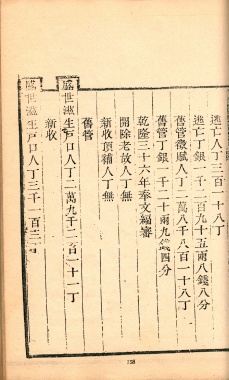 逃亡人丁三千一十八丁
逃亡丁銀一千二百九十五兩八錢八分
舊管徵賦人丁一萬八千八百一十八丁
舊管丁銀一千一十二兩九錢四分
乾隆三十六年奉文編審
開除老故人丁無
新收頂補人丁無
舊管
盛世滋生戶口人丁二萬九千二百一十一丁
新收
盛世滋生戶口人丁三千一百三
158